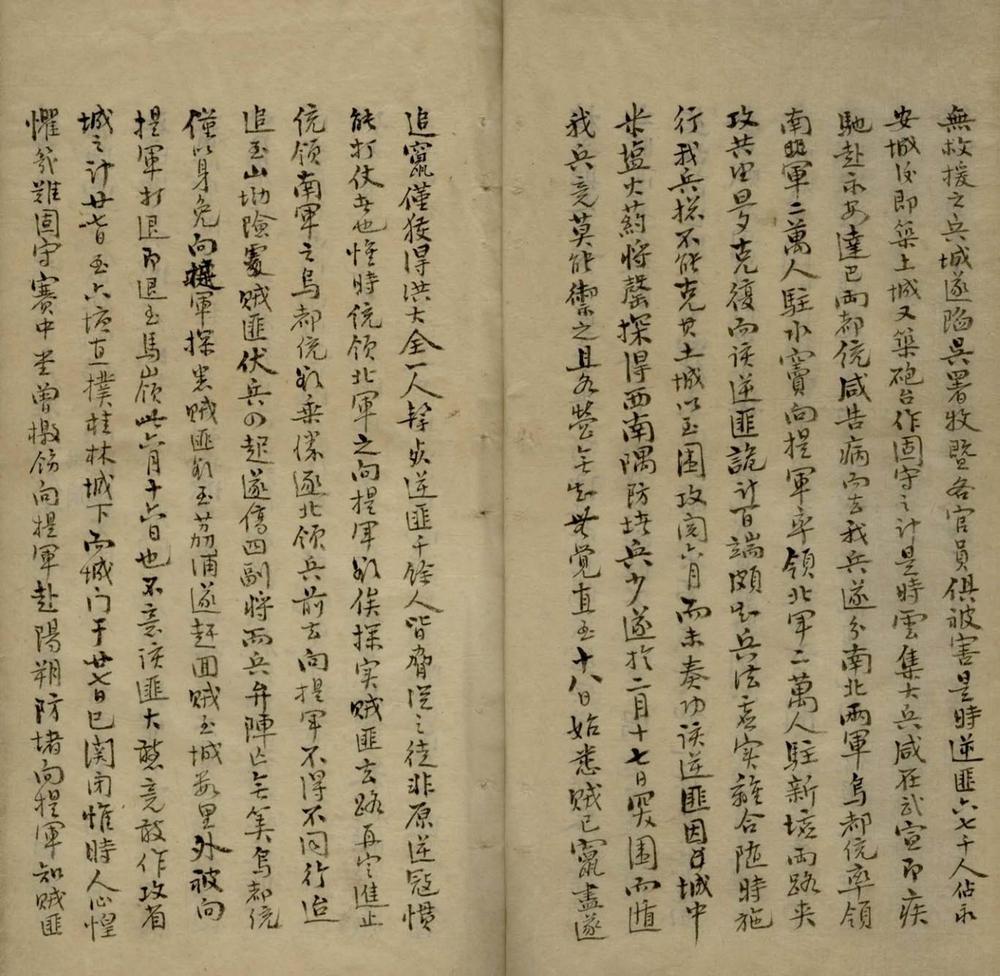 無救援之兵城遂陷吳署牧暨各官員俱被害是時逆匪六七千人佔永
安城後即築土城又築砲台作固守之計是時雲集大兵咸在武宣即疾
馳赴永安達巴兩都統咸告病而去我兵遂分南北兩軍烏都統率領
南軍二萬人駐水竇向提軍率領北軍二萬人駐新墟兩路夾
攻共四克復而該逆匪詭計百端頗知兵法虛实離合随時施
行我兵摠不能克其土城以玉圍攻閲六月而未奏功该逆匪因城中
米塩火药将罄探得西南隅防堵兵少遂扵二月十七日突围而遁
我兵竟莫能禦之且各營無知覺直至十八日始悉贼已竄盡遂
追竄僅獲得洪大全一人拏逆匪千餘人皆脅從之徒非原逆冠慣
能打仗者也惟時统领北軍之向提军欲俟探实贼匪去路再定進止
统领南軍之烏都统欲乗勝逐北领兵前去向提军不得不同行迨
追至山坳險處贼匪伏兵四起遂傷四副将而兵弁陣亡無算烏都統
僅以身免向提軍探悉贼匪欲至荔浦遂赶囬贼至城数里外被向
提軍打退即退至馬岭此六月十六日也不意该匪大憝竟敢作攻省
城之计廿七日至六塘直撲桂林城下而城门于廿七日已関闭惟時人心惶
懼難固守賽中堂曾檄飭向提軍赴陽朔防堵向提軍知贼匪